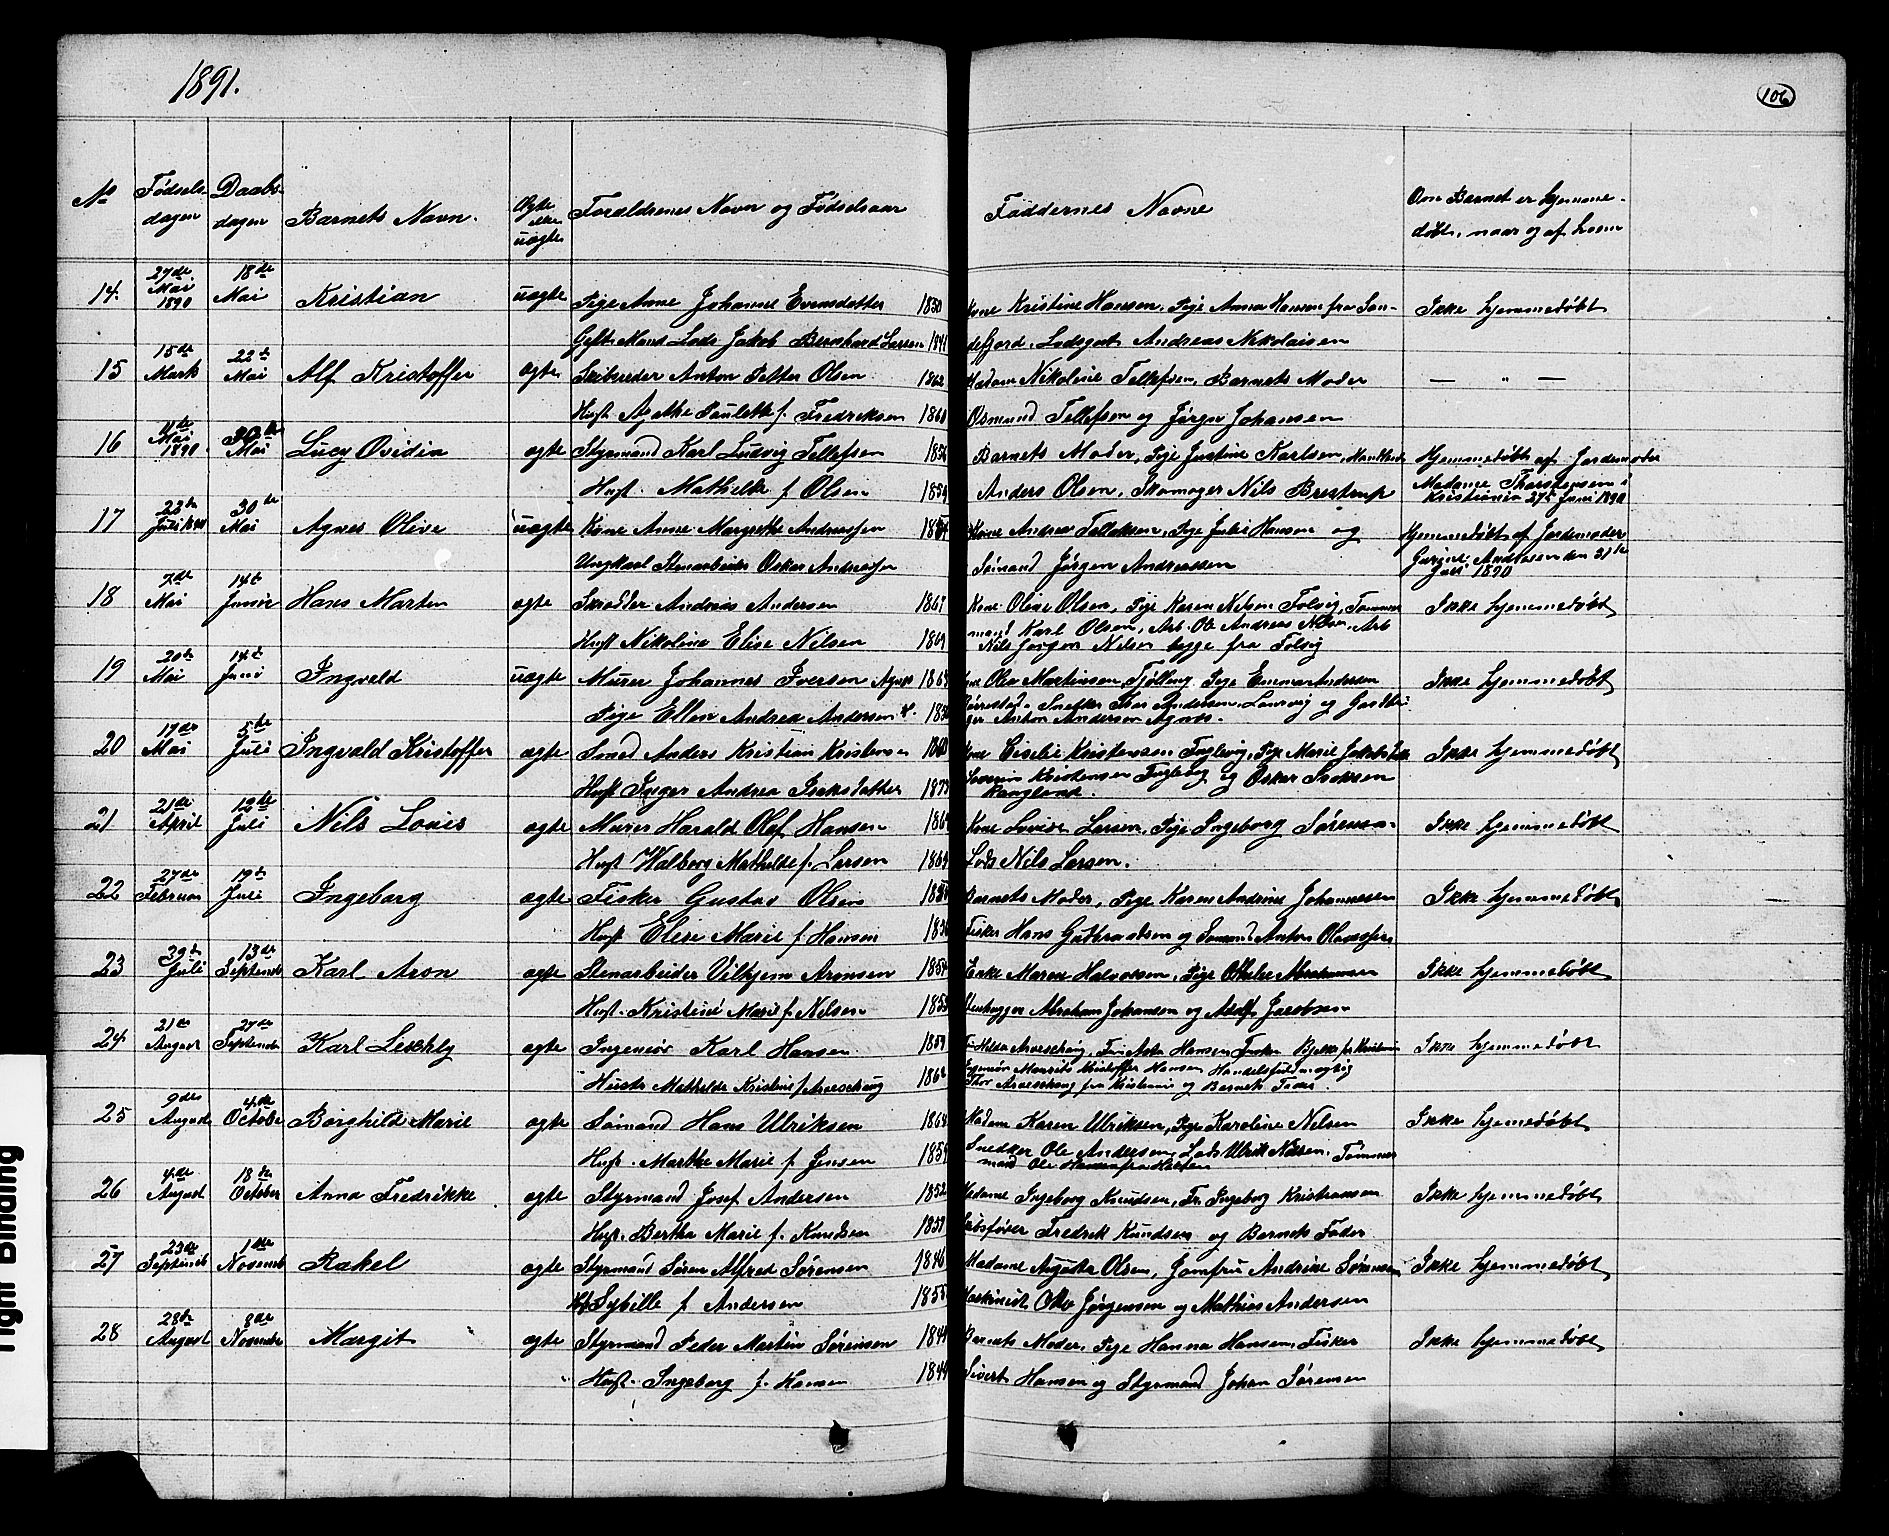 1891.
106
No
Fødsels-
dagen
Daabs-
dagen
Barnets Navn.
Ægte
eller
uægte
Forældrenes Navn og Fødselsaar
Faddernes Navne
Om Barnet er hjemme-
døbt, naar og af hvem
14.
27de
Mai
1890
18de
Mai
Kristian
uægte
Pige Anne Johanne Evensdatter 1850
Gift Mand Lods Jakob Bernhard Larsen 1841
Kone Kristine Hansen, Pige Anna Hansen fra San-
defjord, Lodsgut Andreas Nikolaisen
Ikke hjemmedøbt
15
15de
Marts
22de
Mai
Alf Kristoffer
ægte
Skibsreder Anton Petter Olsen 1862
Hust. Agathe Paulette f. Fredriksen 1860
Madam Nikoline Tellefsen, Barnets Moder
Osmund Tellefsen og Jørgen Johansen
— " —
16
Mai
1890
30te
Mai
Lucy Ovidia
ægte
Styrmand Karl Ludvig Tellefsen 1856
Hust. Mathilde f. Olsen 1859
Barnets Moder, Pige Justine Karlsen,
Anders Olsen, Skomager Nils Brestrup
Hjemmedøbt af Jordemoder
Madame Thorstensen i
Kristiania 27de Juni 1890
17
22de
Juli 1890
30te
Mai
Agnes Olive
uægte
Kone Anne Margrethe Andreassen
Ungkarl Stenarbeider Oskar Andreassen
Kone Andrea Tollaksen, Pige Julie Hansen og
Sømand Jørgen Andreassen
Hjemmedøbt af Jordemoder
Gurine Andresen den 31te
Juli 1890
18
7de
Mai
14de
Juni
Hans Martin
ægte
Skrædder Andreas Andersen 1867
Hust Nikoline Elise Nilsen 1869
Kone Oline Olsen, Pige Karen Nilsen Folvig, Tømmer
mand Karl Olsen, Arb. Ole Andreas Nilsen, Arb
Nils Jørgen Nilsen begge fra Folvig
Ikke hjemmedøbt
19
20de
Mai
14de
Juni
Ingvald
uægte
Murer Johannes Iversen Agnæs
Pige Ellen Andrea Andersen
Olea Martinsen, Tjølling, Pige Emma Andersen
Snekker Thor Andersen, Laurvig og
Anton Andersen Agnæs.
Ikke hjemmedøbt
20
17de
Mai
5te
Juli
Ingvald Kristoffer
ægte
Smed Anders Kristian Kristensen 1860
Hust Inger Andrea Isaksdatter
Kone Cicelie Kristensen Fuglevig, Pige Marie Jakobsen
Severin Kristensen Fuglevig og Oskar Isaksen
Ikke hjemmedøbt
21
21de
April
12de
Juli
Nils Louis
ægte
Murer Harald Olaf Hansen
Hust Walborg Mathilde f. Larsen 1864
Kone Lovise Larsen, Pige Ingeborg Sørensen
Lods Nils Larsen.
Ikke hjemmedøbt
22
27de
Februar
19de
Juli
Ingeborg
ægte
Fisker Gustav Olsen
Hust Elise Marie f. Hansen
Barnets Moder, Pige Karen Andrine Johannesen
Fisker Hans Gulbrandsen og Sømand Anton Olavessen
Ikke hjemmedøbt
23
Juli
13de
Septemb
Karl Aron
ægte
Stenarbeider Vilhjem Aronsen 1854
Hust. Kristine Marie f. Nilsen 1855
Enke Maren Halvorsen, Pige Othilie Abrahamsen
Stenhugger Abraham Johansen og Adolf Jacobsen
Ikke hjemmedøbt
24
21de
August
27de
Septembe
Karl Leschly
ægte
Ingeniør Karl Hansen 1859
Hustr Mathilde Kristine f. Aarseheng 1862
Hilda Aarseheng, Frøken Asta Hansen, Frøken Bjelke fra Kristiania
Ingeniør Mauritz Kristoffer Hansen, Handelsfuldmægtig
Thor Aarseheng fra Kristiania og Barnets Fader.
Ikke hjemmedøbt
25
9de
August
4de
October
Borghild Marie
ægte
Sømand Hans Ulriksen 1864
Hust. Marthe Marie f. Jensen 1859
Madam Karen Ulriksen, Pige Karoline Nilsen
Snedker Ole Andersen, Lods Ulrik Nilsen, Tømmer
mand Ole Hansen fra Halsen
Ikke hjemmedøbt
26
4de
August
18de
October
Anna Fredrikke
ægte
Styrmand Josef Andersen 1852
Hust. Bertha Marie f. Knudsen 1859
Madame Ingeborg Knudsen, Fr. Ingeborg Kristiansen
Skibsfører Fredrik Knudsen og Barnets Fader
Ikke hjemmedøbt
27
23de
Septemb
1ste
Novemb
Rakel
ægte
Styrmand Søren Alfred Sørensen 1846
Hst Sybille f. Andersen 1855
Madame Augusta Olsen, Jomfru Andrine Sørensen
Maskinist Otto Jørgensen og Mathias Andersen
Ikke hjemmedøbt
28
28de
August
8de
Novembe
Margit
ægte
Styrmand Peder Martin Sørensen 1841
Hust. Ingeborg f. Hansen 1844
Barnets Moder, Pige Hanna Hansen, Fisker
Sivert Hansen og Styrmand Johan Sørensen
Ikke hjemmedøbt
Tight Binding